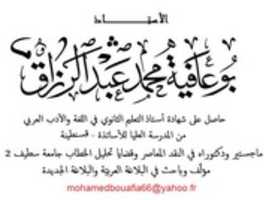 الأستـــــاذ
بوعافية محمد عبد الرزاق
حاصل على شهادة أستاذ التعليم الثانوي في اللغة والأدب العربي
من المدرسة العليا للأساتذة - قسنطينة
ماجستير ودكتوراه في النقد المعاصر وقضايا تحليل الخطاب جامعة سطيف 2
مؤلف وباحث في البلاغة العربية والبلاغة الجديدة
mohamedbouafia66@yahoo.fr